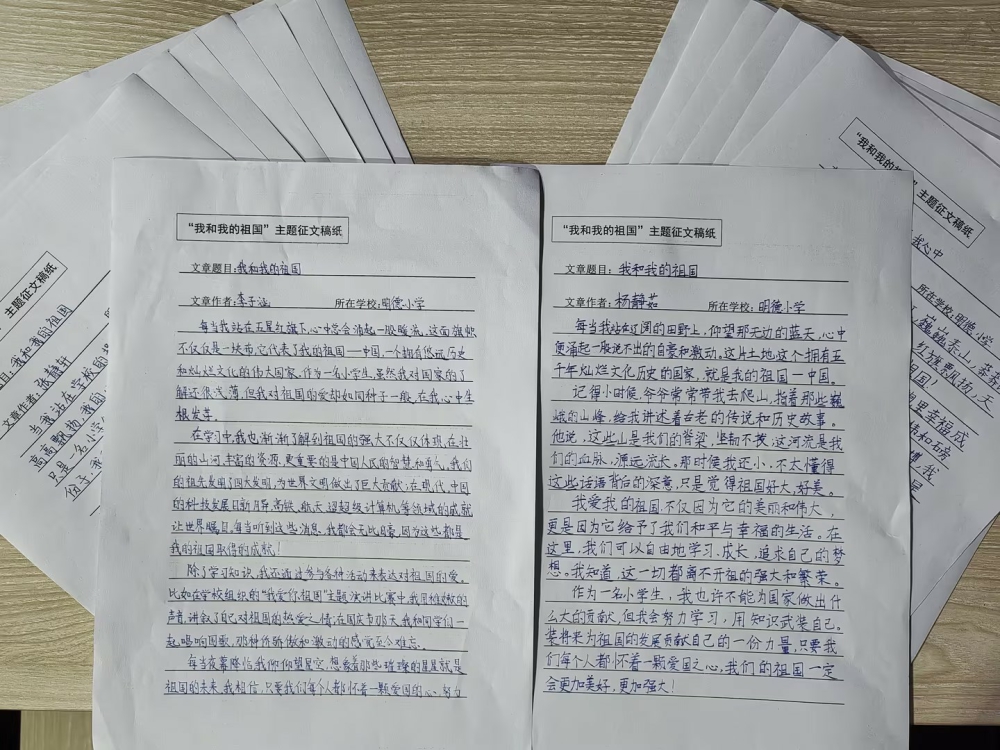 "我和我的祖国"主题征文稿纸
文章题目:我和我的祖国
文章作者:李子涵 所在学校:明德小学
每当我站在五星红旗下,心中总会涌起一股暖流,这面旗帜
不仅仅是一块布,它代表了我的祖国一中国,一个拥有悠远历史
和灿烂文化的伟大国家,作为一名小学生,虽然我对国家的了
解还很浅薄,但我对祖国的爱却如同种子一般,在我心中生
根发芽。
在学习中,我也渐渐了解到祖国的强大不仅仅体现在壮
丽的山河,丰富的资源,更重要的是中国人民的智慧和勇气,我们
的祖先发明了四大发明,为世界文明做出了巨大贡献;在现代,中国
的科技发展日新月异,高铁、航天、超级计算机等领域的成就
让世界瞩目,每当听到这些消息,我都会无比自豪,因为这些都是
我的祖国取得的成就!
除了学习知识,我还通过参与各种活动来表达对祖国的爱。
比如在学校组织的"我爱你祖国"主题演讲比赛中,我用稚嫩的
声音,讲叙了自己对祖国的热爱之情;在国庆节那天,我和同学们一
起唱响国歌,那种骄傲和激动的感觉至今难忘。
每当夜幕降临,我仰望星空,想象着那些璀璨的星星就是
祖国的未来,我相信,只要我们每个人都怀着一颗爱国的心,努力
"我和我的祖国"主题征文稿纸
文章题目: 我和我的祖国
文章作者: 杨静茹 所在学校: 明德小学
每当我站在辽阔的田野上,仰望那无边的蓝天,心中
便涌起一股说不出的自豪和激动,这片土地这个拥有五
千年灿烂文化历史的国家,就是我的祖国一中国。
记得小时候,爷爷常常带我去爬山,指着那些巍
峨的山峰,给我讲述着古老的传说和历史故事。
他说,这些山是我们的脊梁,坚韧不拔,这河流是我
们的血脉,源远流长。那时候我还小,不太懂得
这些话语背后的深意,只是觉得祖国好大,好美。
我爱我的祖国,不仅因为它的美丽和伟大,
更是因为它给予了我们和平与幸福的生活。在
这里,我们可以自由地学习、成长,追求自己的梦
想。我知道,这一切都离不开祖的强大和繁荣。
作为一名小学生,我也许不能为国家做出什
么大的贡献,但我会努力学习,用知识武装自己。
装将来为祖国的发展贡献自己的一份力量,只要我
们每个人都怀着一颗爱国之心,我们的祖国一定
会更加美好,更加强大!
主题征文稿纸
目:我和我的祖国
文章作者:张静轩
当我站在学校的
高高飘扬
只是一名小学
"我和我的祖国"主题征文稿纸
我心中
所在学校:明德小学
巍巍泰山,
红旗飘扬,天
祖国!
里幸福成